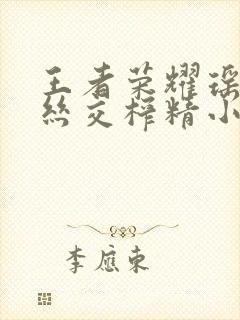 王者荣耀瑶
丝交榨精小
李应东